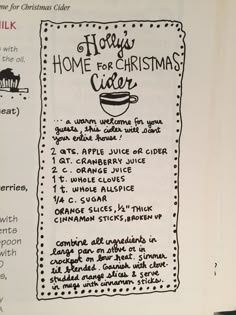 me for Christmas Cider
ILK
with
the oil.
Holly's
HOME FOR CHRISTMAS
Cider
... a warm welcome for your
guests, this cider will scent
your entire house!
2 QTS. APPLE JUICE OR CIDER
1 QT. CRANBERRY JUICE
2 C. ORANGE JUICE
1 t. WHOLE CLOVES
1 t. WHOLE ALLSPICE
1/4 C. SUGAR
ORANGE SLICES, 1/2" THICK
CINNAMON STICKS, BROKEN UP
Combine all ingredients in
large pan on stove or in
crockpot on low heat. Simmer
til blended. Garnish with clove-
studded orange slices & serve
in mugs with cinnamon sticks.
eat)
erries,
with
ents
poon
with